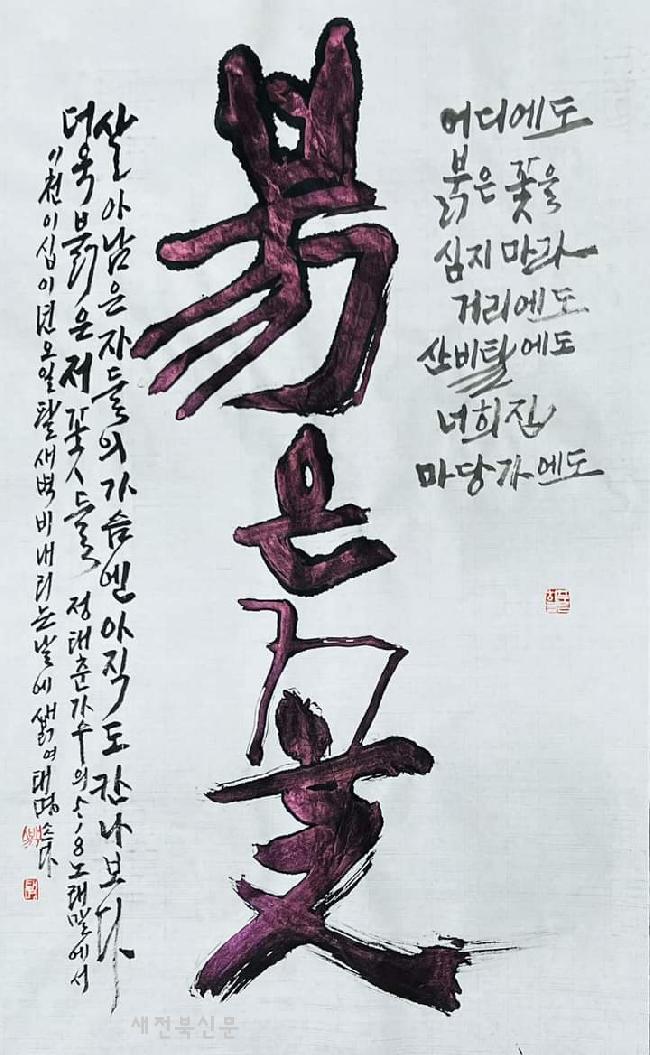 어디에도
붉은 꽃을
심지마라
거리에도
산비탈에도
너희집
마당가에도
붉은 꽃
살아남은자들의 가슴엔 아직도 칸나보다
더욱 붉은 저 꽃들 정태춘가수의 5,18 노래말에서
이천이십이년 오월 새벽 비내리는날에 여태명 쓰다
새전북신문